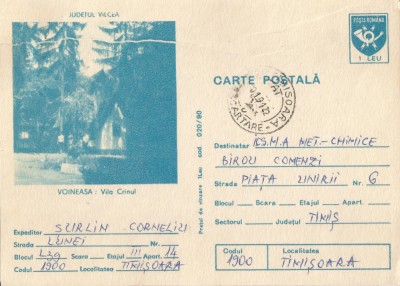 JUDEȚUL VÎLCEA
VOINEASA : Vila Crinul
Expeditor SURLIN CORNELIU
Strada LUNEI Nr.
Blocul Scara Etajul III Apart. 14
Codul 1900 Localitatea TIMIȘOARA
Prețul de vînzare 1Leu cod. 020/90
POȘTA ROMÂNĂ
1 LEU
CARTE POȘTALĂ
TIMIȘOARA
CARTARE
Destinatar MET-CHIMICE
BIROU COMENZI
Strada PIAȚA UNIRII Nr. 6
Blocul Scara Etajul Apart.
Sectorul Județul TIMIȘ
Codul Localitatea
1900 TIMIȘOARA